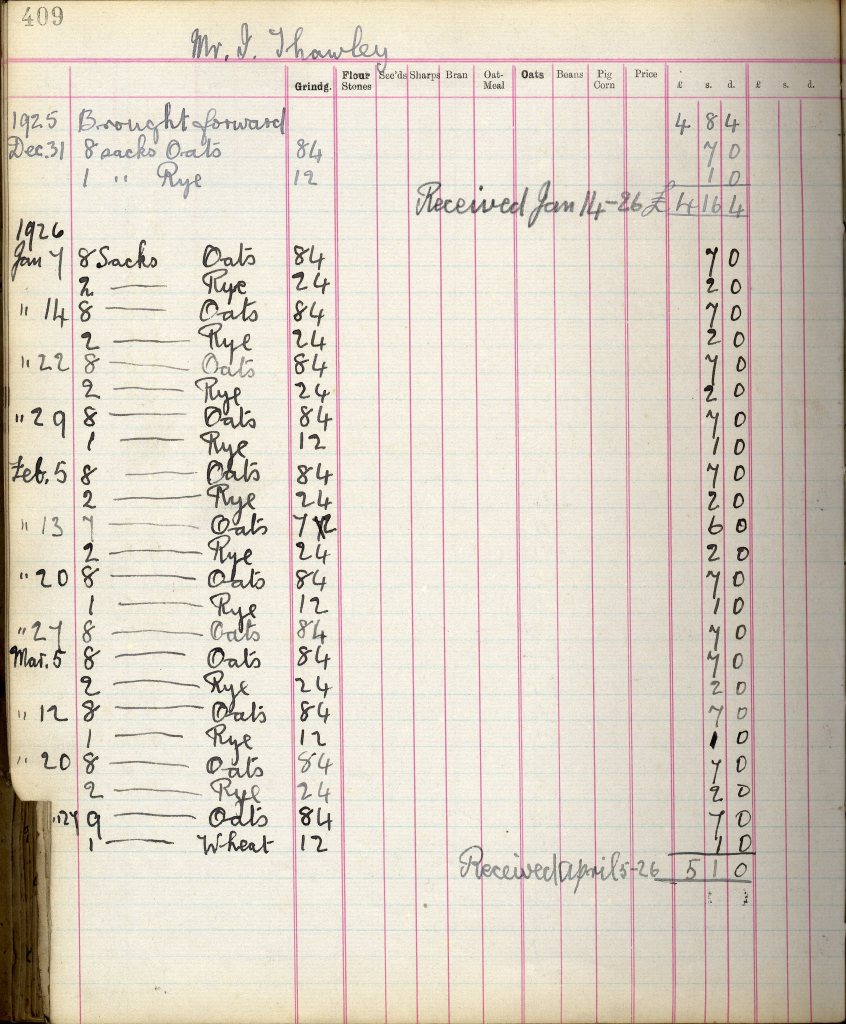 409
Mr. I. Thawley
Grindg. Flour Stones Sec'ds Sharps Bran Oat-Meal Oats Beans Pig Corn Price £ s. d. £ s. d.
1925 Brought forward 4 8 4
Dec. 31 8 sacks Oats 84 7 0
1 " Rye 12 1 0
Received Jan 14-26 £ 4 16 4
1926
Jan 7 8 Sacks Oats 84 7 0
2 — Rye 24 2 0
" 14 8 — Oats 84 7 0
2 — Rye 24 2 0
" 22 8 — Oats 84 7 0
2 — Rye 24 2 0
" 29 8 — Oats 84 7 0
1 — Rye 12 1 0
Feb. 5 8 — Oats 84 7 0
2 — Rye 24 2 0
" 13 7 — Oats 72 6 0
2 — Rye 24 2 0
" 20 8 — Oats 84 7 0
1 — Rye 12 1 0
" 27 8 — Oats 84 7 0
Mar. 5 8 — Oats 84 7 0
2 — Rye 24 2 0
" 12 8 — Oats 84 7 0
1 — Rye 12 1 0
" 20 8 — Oats 84 7 0
2 — Rye 24 2 0
" 27 9 — Oats 84 7 0
1 — Wheat 12 1 0
Received April 5-26 5 1 0